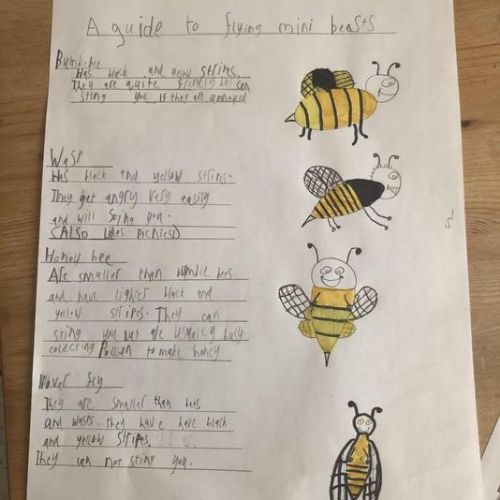 A guide to flying mini beasts
Bumblebee
Has black and yellow stripes.
They are quite friendly but can
sting you if they are annoyed
Wasp
Has black and yellow stripes.
They get angry very easily
and will sting you.
(Also likes picnics)
Honey bee
Are smaller than bumble bees
and have lighter black and
yellow stripes. They can
sting you but are usually busy
collecting Pollen to make honey
Hover fly
They are smaller than bees
and wasps. they have have black
and yellow stripes
They can not sting you.